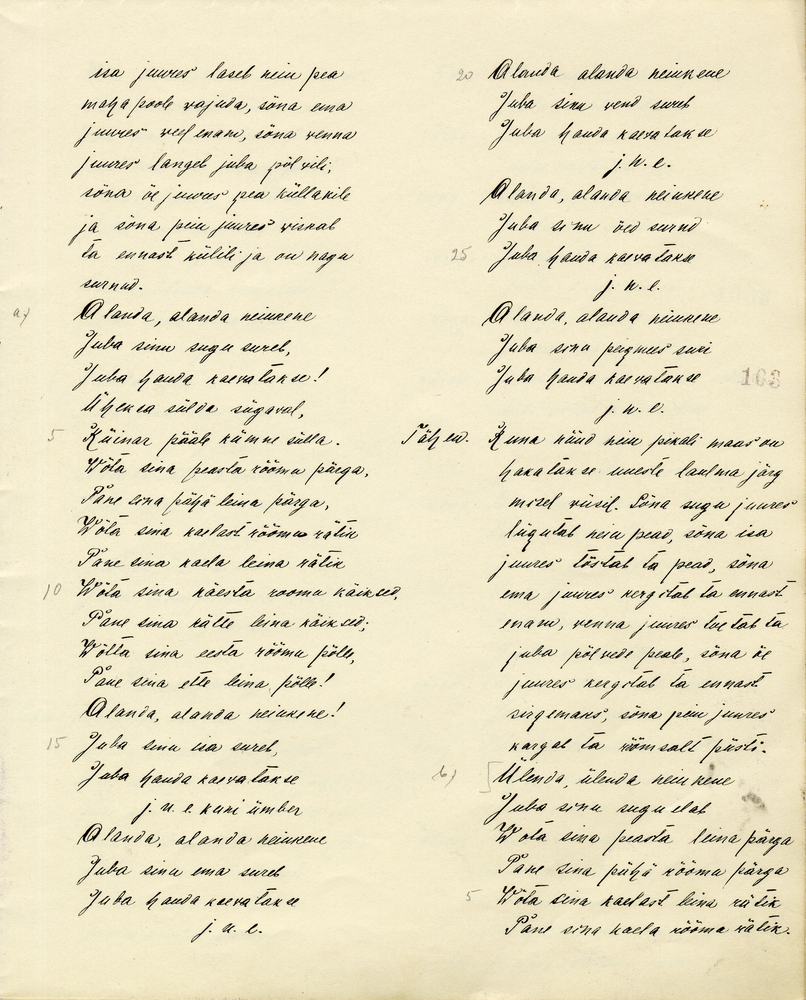 isa juures laseb nein pea
maha poole vajuda, sõna ema
juures veel enam, sõna venna
juures langeb juba põlvili,
sõna õe juures pea küllakile
ja sõna peiu juures viskab
ta ennast külili ja on nagu
surnud.
a,) Alanda, alanda neiukene
Juba sinu sugu sureb,
Juba hauda kaevatakse!
Üheksa sülda sügaval,
5 Küinar pääle kümne sülla.
Wõta sina peasta rõõmu pärga,
Pane sina pähä leina pärga,
Wõta sina kaelast rõõmu rätik
Pane sina kaela leina rätik
10 Wõta sina käesta roomu käiksed,
Pane sina kätte leina käiksed;
Wõtta sina eesta rõõmu põlle,
Pane sina ette leina põlle!
Alanda, alanda neiukene!
15 Juba sinu isa sureb,
Juba hauda kaevatakse
j. n. e. kuni ümber
Alanda, alanda neiukene
Juba sinu ema sureb
Juba hauda kaevatakse
j. n. e.
20 Alanda alanda neiukene
Juba sinu vend sureb
Juba hauda kaevatakse
j. n. e.
Alanda, alanda neiukene
Juba sinu õed surnd
25 Juba hauda kaevatakse
j. n. e.
Alanda, alanda neiukene
Juba sinu peigmees suri
Juba hauda kaevatakse
163
j. n. e.
Tähen. Kuna nüüd nein pikali maas on
hakatakse uueste laulma järg
misel viisil. Sõna sugu juures
liigutab nein pead, sõna isa
juures tõstab ta pead, sõna
ema juures kergitab ta ennast
enam, venna juures tuetab ta
juba põlvede peale, sõna õe
juures kergitab ta ennast
sirgemaks, sõna peiu juures
kargab ta rõõmsalt püsti.
b,) [Ülenda, ülenda neiukene
Juba sinu sugu elab
Wota sina peasta leina pärga
Pane sina pähä rõõmu pärga
5 Wõta sina kaelast leina rätik
Pane sina kaela rõõma rätik.